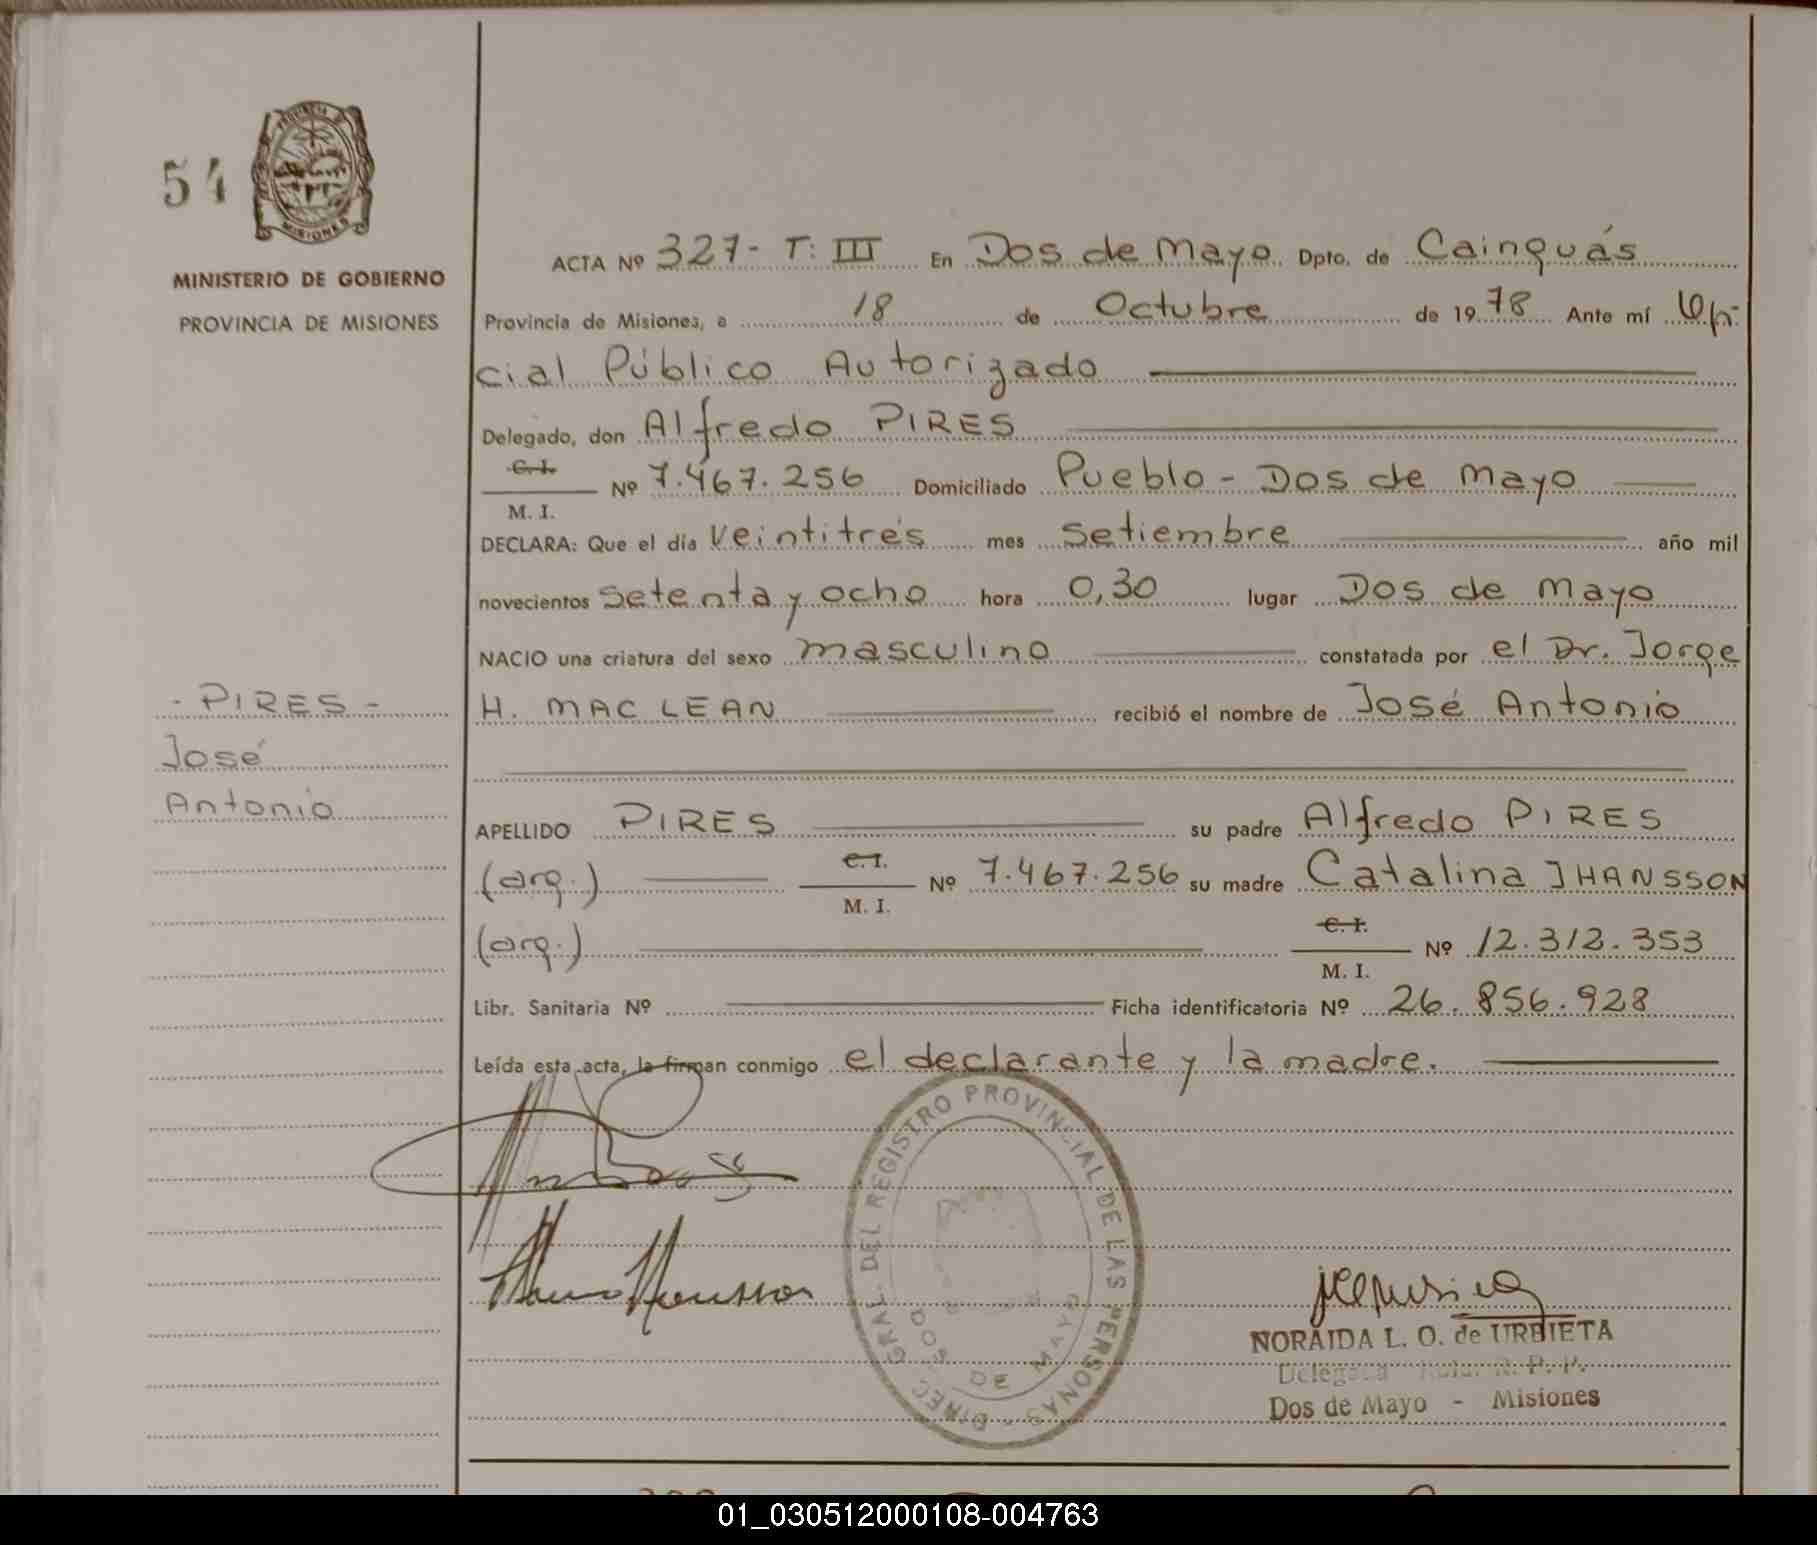 54
PROVINCIA DE
MISIONES
MINISTERIO DE GOBIERNO
PROVINCIA DE MISIONES
ACTA Nº 327- T: III En Dos de Mayo Dpto. de Cainguás
Provincia de Misiones, a 18 de Octubre de 1978 Ante mí Ofi-
cial Público Autorizado
Delegado, don Alfredo PIRES
C. I.
M. I. Nº 7.467.256 Domiciliado Pueblo - Dos de Mayo
DECLARA: Que el día Veintitrés mes Setiembre año mil
novecientos Setenta y ocho hora 0,30 lugar Dos de Mayo
NACIO una criatura del sexo masculino constatada por el Dr. Jorge
H. MAC LEAN recibió el nombre de José Antonio
- PIRES -
José
Antonio
APELLIDO PIRES su padre Alfredo PIRES
(arg.) C. I.
M. I. Nº 7.467.256 su madre Catalina JHANSSON
(arg.) C. I.
M. I. Nº 12.312.353
Libr. Sanitaria Nº Ficha identificatoria Nº 26.856.928
Leída esta acta, la firman conmigo el declarante y la madre.
DIREC. GRAL. DEL REGISTRO PROVINCIAL DE LAS PERSONAS
DOS DE MAYO
NORAIDA L. O. de URBIETA
Delegada R. P. P.
Dos de Mayo - Misiones
01_030512000108-004763